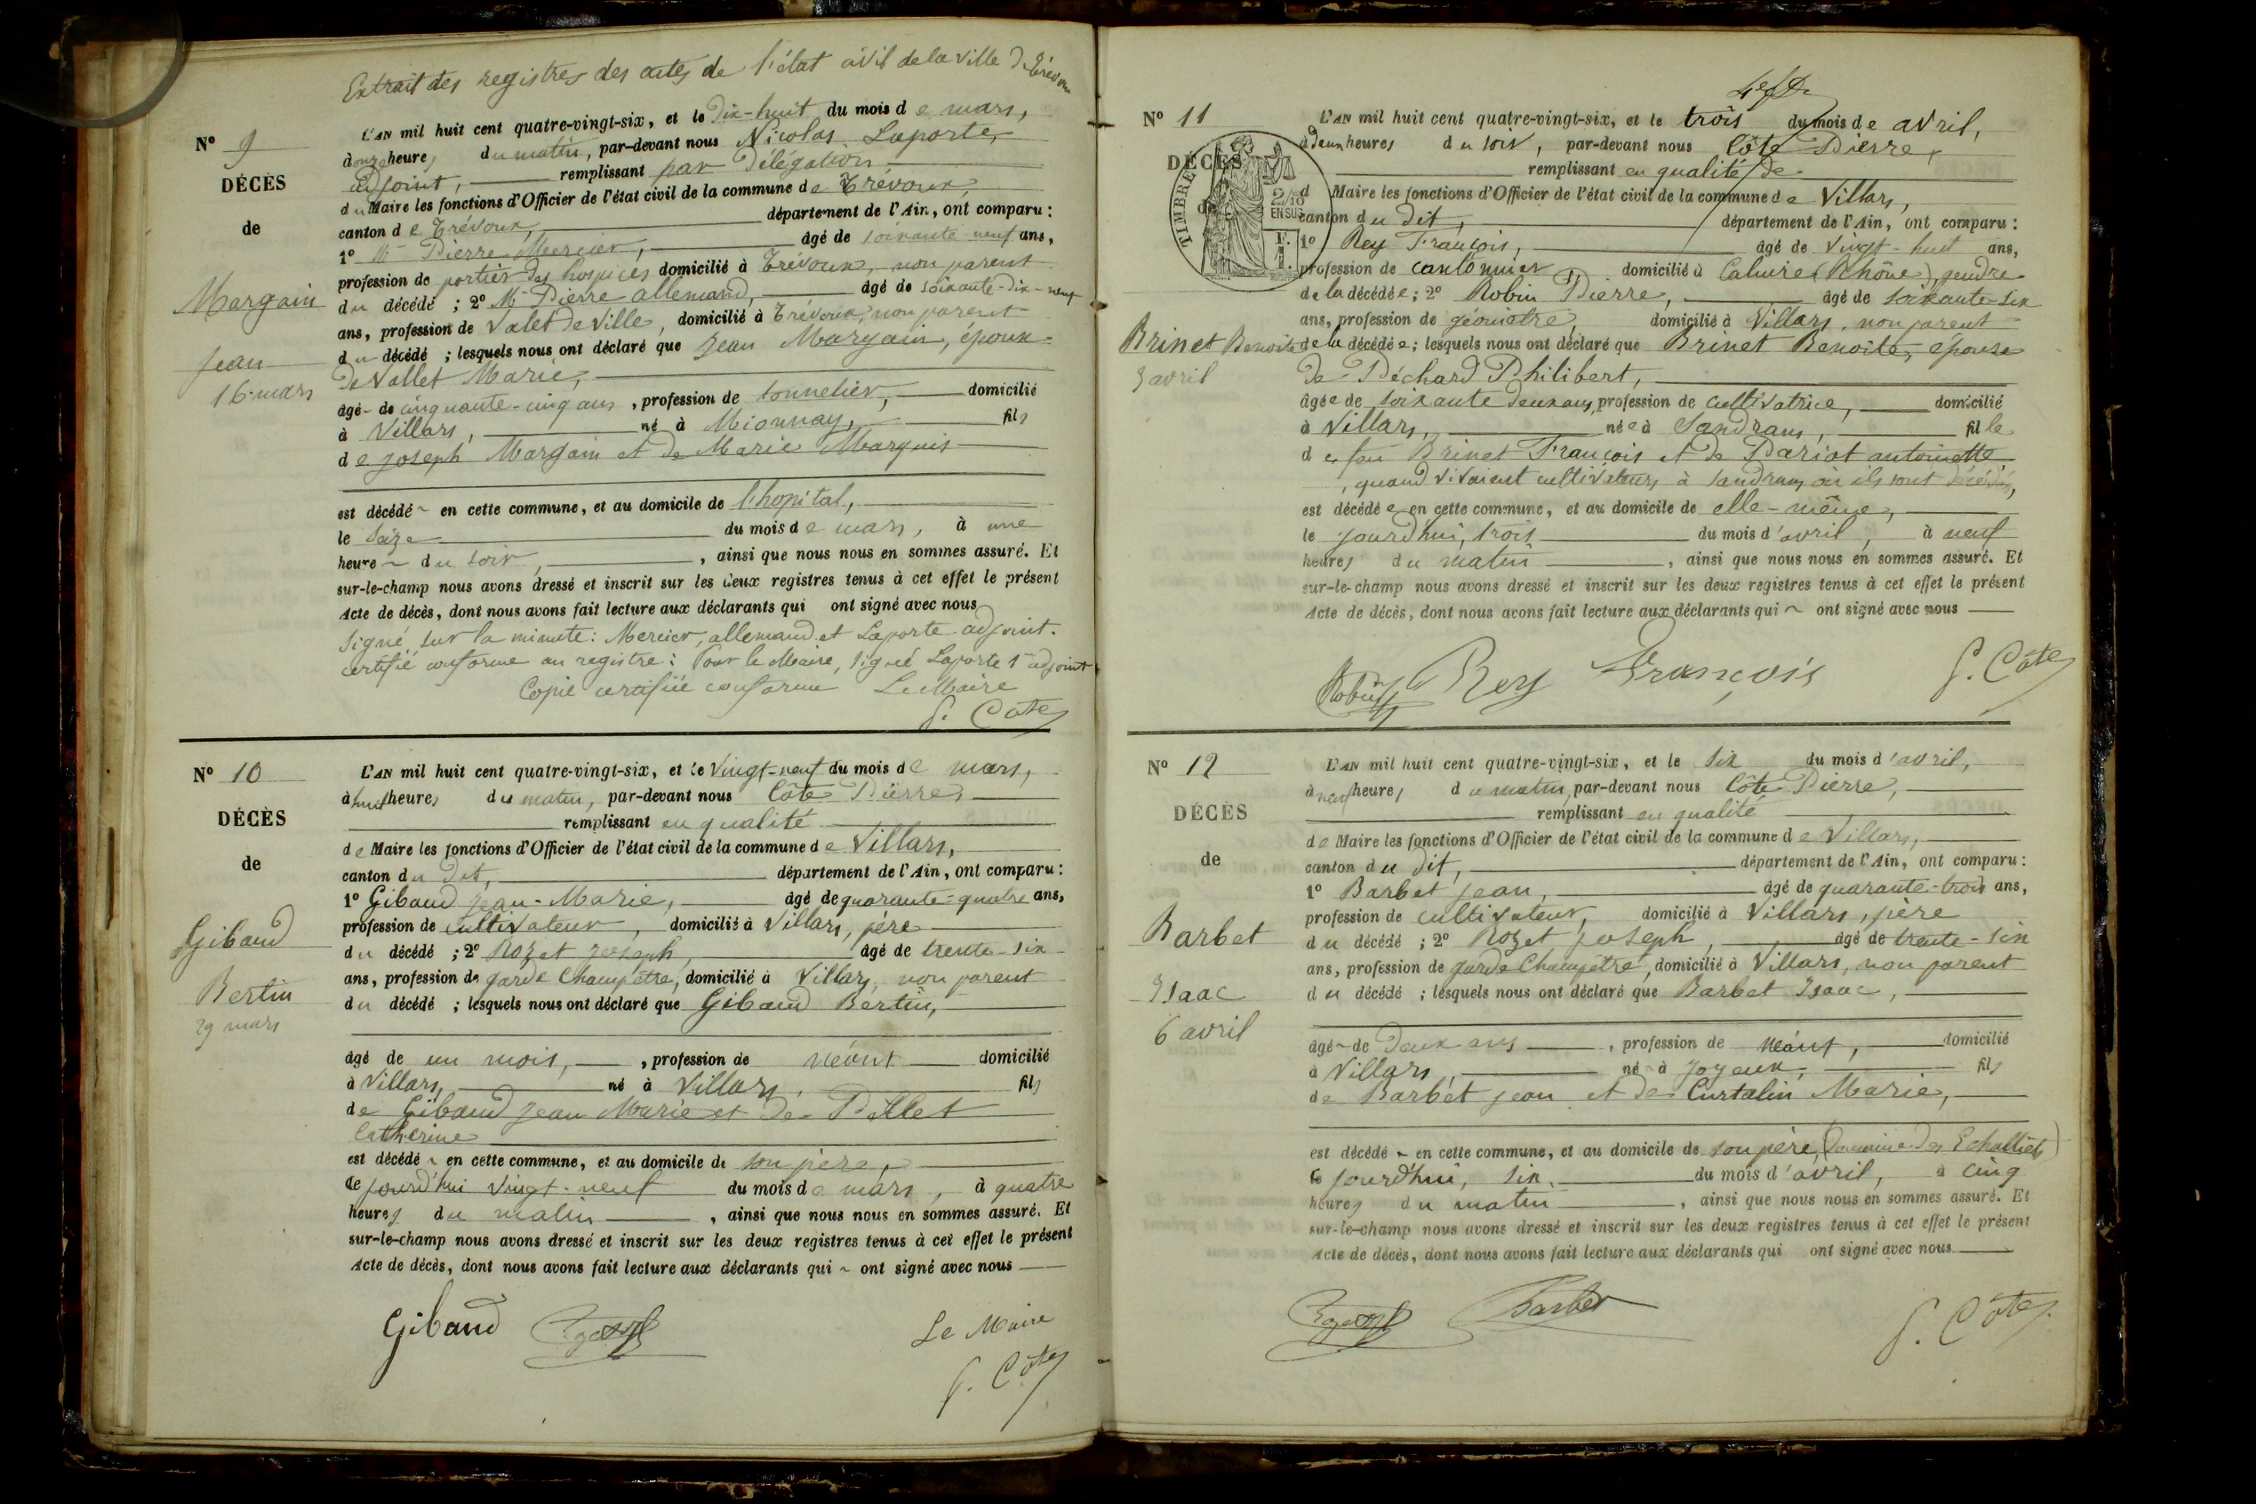 Extrait des registres des actes de l'état civil de la ville de Trévoux
N° 9
DÉCÈS
de
Margain
Jean
16 mars
L'AN mil huit cent quatre-vingt-six, et le dix-huit du mois de mars,
à onze heures du matin, par-devant nous Nicolas Laporte,
adjoint, remplissant par Délégation
du Maire les fonctions d'Officier de l'état civil de la commune de Trévoux,
canton de Trévoux, département de l'Ain, ont comparu :
1° Mr Pierre Mercier, âgé de soixante-neuf ans,
profession de portier des hospices domicilié à Trévoux, non parent
du décédé ; 2° Mr Pierre allemand, âgé de soixante-dix-neuf
ans, profession de Valet de Ville, domicilié à Trévoux, non parent
du décédé ; lesquels nous ont déclaré que Jean Margain, époux
de Vallet Marie,
âgé de cinquante-cinq ans, profession de tonnelier, domicilié
à Villars, né à Mionnay, fils
de Joseph Margain et de Marie Marquis
est décédé en cette commune, et au domicile de l'hopital,
le seize du mois de mars, à une
heure du soir, ainsi que nous nous en sommes assuré. Et
sur-le-champ nous avons dressé et inscrit sur les deux registres tenus à cet effet le présent
Acte de décès, dont nous avons fait lecture aux déclarants qui ont signé avec nous
Signé sur la minute : Mercier, allemand et Laporte adjoint.
certifié conforme au registre : Pour le Maire, signé Laporte 1er adjoint
Copie certifiée conforme Le Maire
P. Côte
N° 10
DÉCÈS
de
Gibaud
Bertin
29 mars
L'AN mil huit cent quatre-vingt-six, et le Vingt-neuf du mois de mars,
à huit heures du matin, par-devant nous Côte Pierre,
remplissant en qualité
de Maire les fonctions d'Officier de l'état civil de la commune de Villars,
canton du dit, département de l'Ain, ont comparu :
1° Gibaud Jean-Marie, âgé de quarante-quatre ans,
profession de cultivateur, domicilié à Villars, père
du décédé ; 2° Rozet Joseph, âgé de trente-six
ans, profession de garde Champêtre, domicilié à Villars, non parent
du décédé ; lesquels nous ont déclaré que Gibaud Bertin,
âgé de un mois, profession de néant domicilié
à Villars, né à Villars, fils
de Gibaud Jean Marie et de Pillet
Catherine
est décédé en cette commune, et au domicile de son père,
le jourd'hui Vingt-neuf du mois de mars, à quatre
heures du matin, ainsi que nous nous en sommes assuré. Et
sur-le-champ nous avons dressé et inscrit sur les deux registres tenus à cet effet le présent
Acte de décès, dont nous avons fait lecture aux déclarants qui ~ ont signé avec nous
Gibaud
Le Maire
P. Côte
N° 11
DÉCÈS
de
TIMBRE
2/10
EN SUS
Brinet Benoite
3 avril
L'AN mil huit cent quatre-vingt-six, et le trois du mois de avril,
à deux heures du soir, par-devant nous Côte Pierre,
remplissant en qualité de
d Maire les fonctions d'Officier de l'état civil de la commune de Villars,
canton du dit, département de l'Ain, ont comparu :
1° Rey François, âgé de vingt-huit ans,
profession de cantonnier domicilié à Caluire (Rhône), gendre
de la décédée ; 2° Robin Pierre, âgé de soixante-six
ans, profession de géomètre, domicilié à Villars, non parent
de la décédée ; lesquels nous ont déclaré que Brinet Benoite, épouse
de Péchard Philibert,
âgée de soixante deux ans, profession de cultivatrice, domicilié
à Villars, née à Sandrans, fille
de feu Brinet François et de Pariot antoinette
, quand vivaient cultivateurs à Sandrans où ils sont décédés,
est décédée en cette commune, et au domicile de elle-même,
le jourd'hui, trois du mois d'avril, à neuf
heures du matin, ainsi que nous nous en sommes assuré. Et
sur-le-champ nous avons dressé et inscrit sur les deux registres tenus à cet effet le présent
Acte de décès, dont nous avons fait lecture aux déclarants qui ~ ont signé avec nous
Robin Rey François P. Côte
N° 12
DÉCÈS
de
Barbet
Isaac
6 avril
L'AN mil huit cent quatre-vingt-six, et le six du mois d'avril,
à neuf heures du matin, par-devant nous Côte Pierre,
remplissant en qualité
de Maire les fonctions d'Officier de l'état civil de la commune de Villars,
canton du dit, département de l'Ain, ont comparu :
1° Barbet Jean, âgé de quarante-trois ans,
profession de cultivateur, domicilié à Villars, père
du décédé ; 2° Rozet Joseph, âgé de trente-six
ans, profession de garde Champêtre, domicilié à Villars, non parent
du décédé ; lesquels nous ont déclaré que Barbet Isaac,
âgé de Deux ans, profession de néant, domicilié
à Villars, né à Joyeux, fils
de Barbet Jean et de Curtalin Marie,
est décédé en cette commune, et au domicile de son père, (domaine des Echalliets)
le jourd'hui, six, du mois d'avril, à cinq
heures du matin, ainsi que nous nous en sommes assuré. Et
sur-le-champ nous avons dressé et inscrit sur les deux registres tenus à cet effet le présent
Acte de décès, dont nous avons fait lecture aux déclarants qui ont signé avec nous
Barbet P. Côte